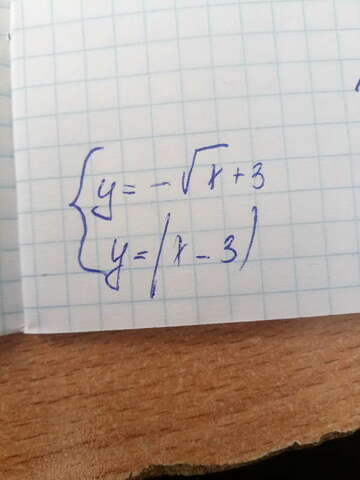 y = -√x + 3
y = |x - 3|